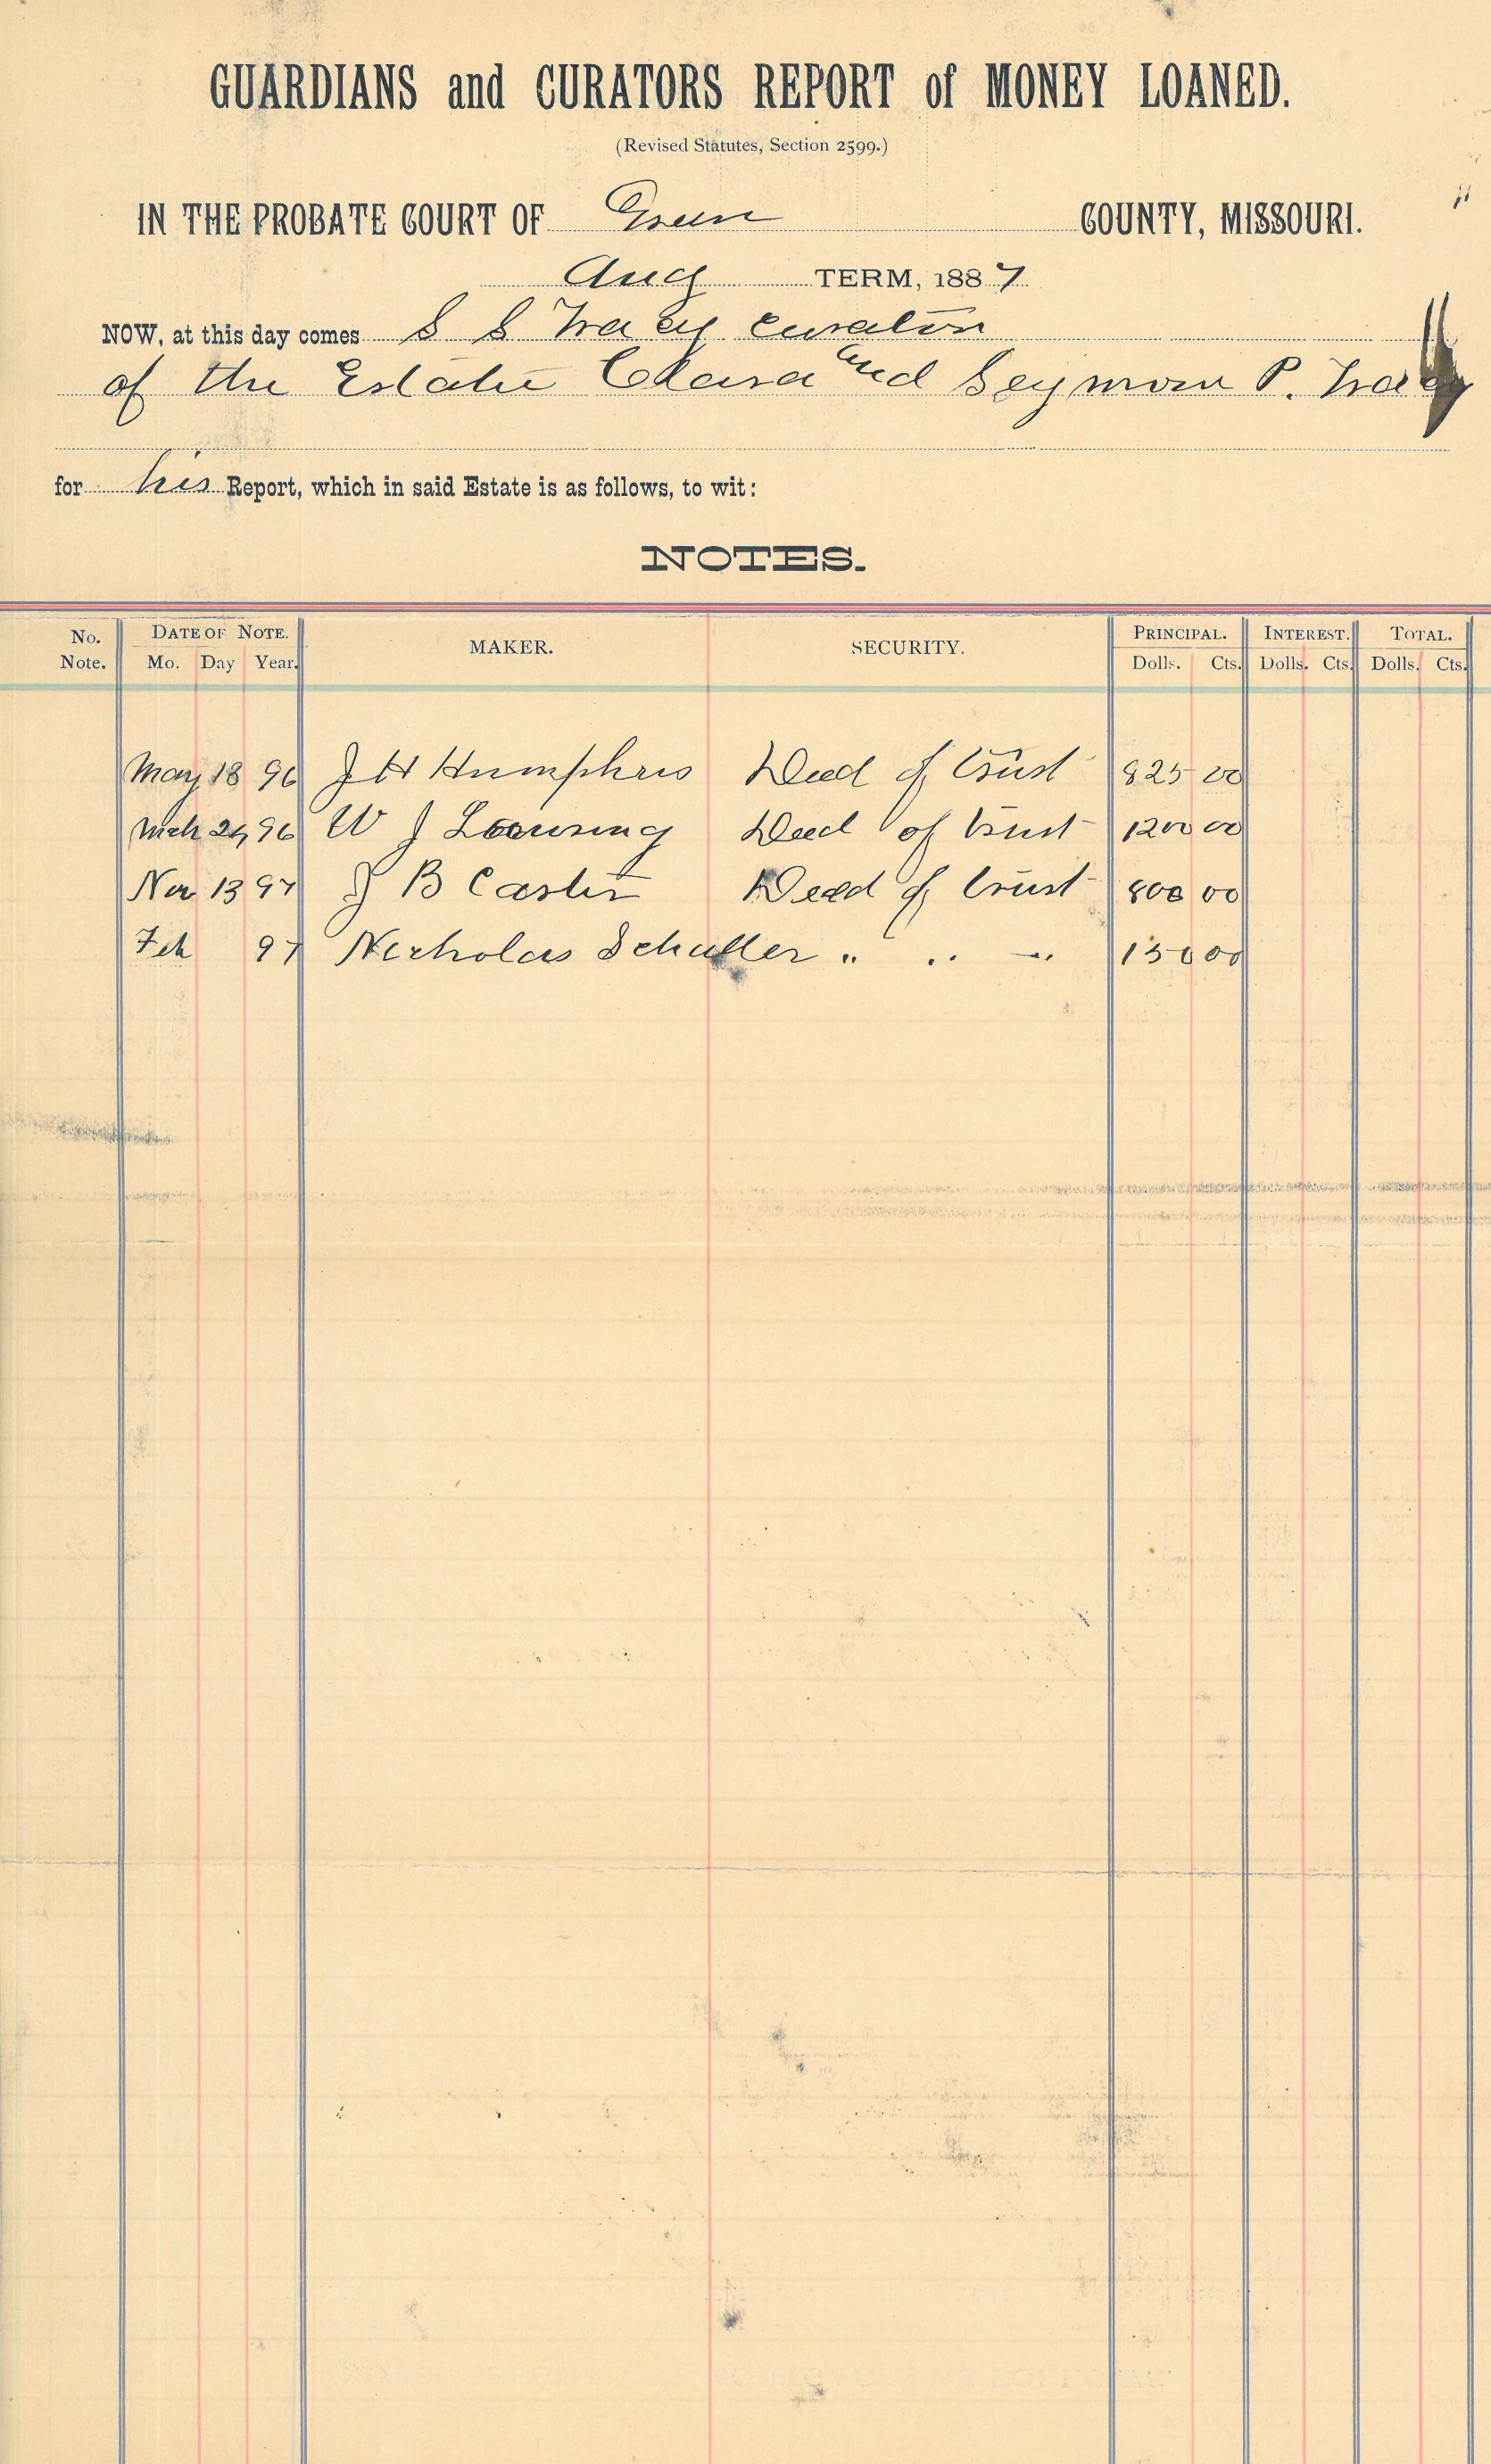 GUARDIANS and CURATORS REPORT of MONEY LOANED.
(Revised Statutes, Section 2599.)
IN THE PROBATE COURT OF Green COUNTY, MISSOURI.
Aug TERM, 1887
NOW, at this day comes S S Tracy curator
of the Estate Clara and Seymour P. Tracy
for his Report, which in said Estate is as follows, to wit:
NOTES.
No. Note. DATE OF NOTE. Mo. Day Year. MAKER. SECURITY. PRINCIPAL. Dolls. Cts. INTEREST. Dolls. Cts. TOTAL. Dolls. Cts.
May 18 96 J H Humphris Deed of Trust 825 00
Mch 96 W J Deed of Trust 1200 00
Nov 13 97 J B Deed of Trust 800 00
Feb 97 Nicholas " " " 150 00